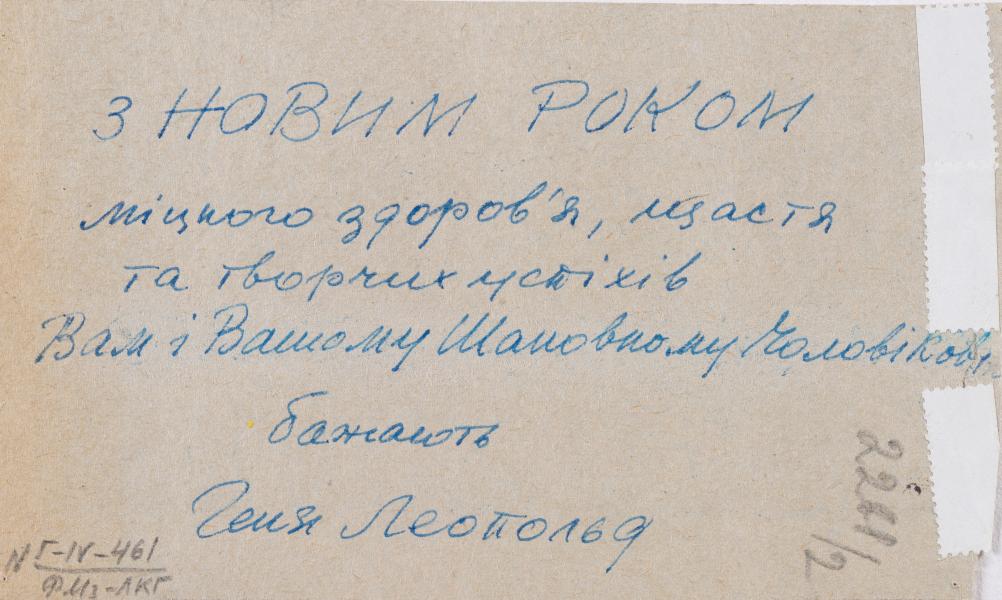 З НОВИМ РОКОМ
міцного здоров'я, щастя
та творчих успіхів
Вам і Вашому Шановному Чоловікові
бажають
Геня Леопольд
N Г-IV-461
ФМз-ЛКГ
2211/2